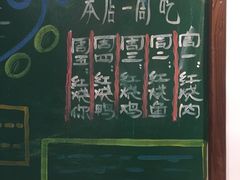 本店一周吃
周一:红烧肉
周二:红烧鱼
周三:红烧鸡
周四:红烧鸭
周五:红烧你